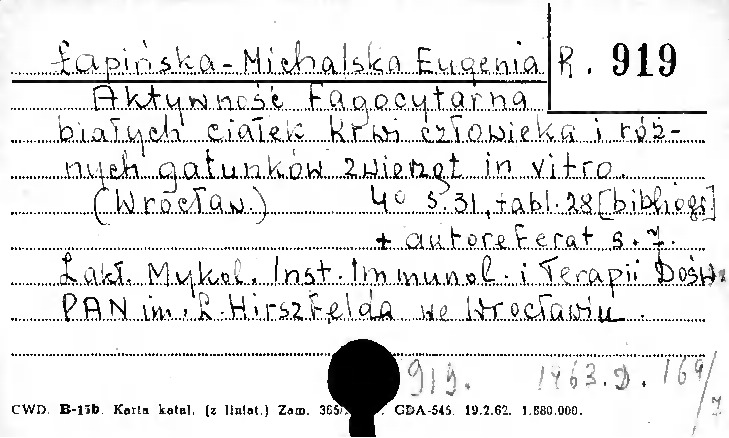 Łapińska-Michalska Eugenia R. 919
Aktywność fagocytarna
białych ciałek krwi człowieka i róż-
nych gatunków zwierząt in vitro.
(Wrocław.) 4° s.31, tabl.28 [bibliogr]
+ autoreferat s. 7.
Zakł. Mykol. Inst. Immunol. i Terapii Dośw.
PAN im. L. Hirszfelda we Wrocławiu.
919. 1963.D. 169/7
CWD. B-15b. Karta katal. (z liniat.) Zam. GDA-545. 19.2.62. 1.880.000.